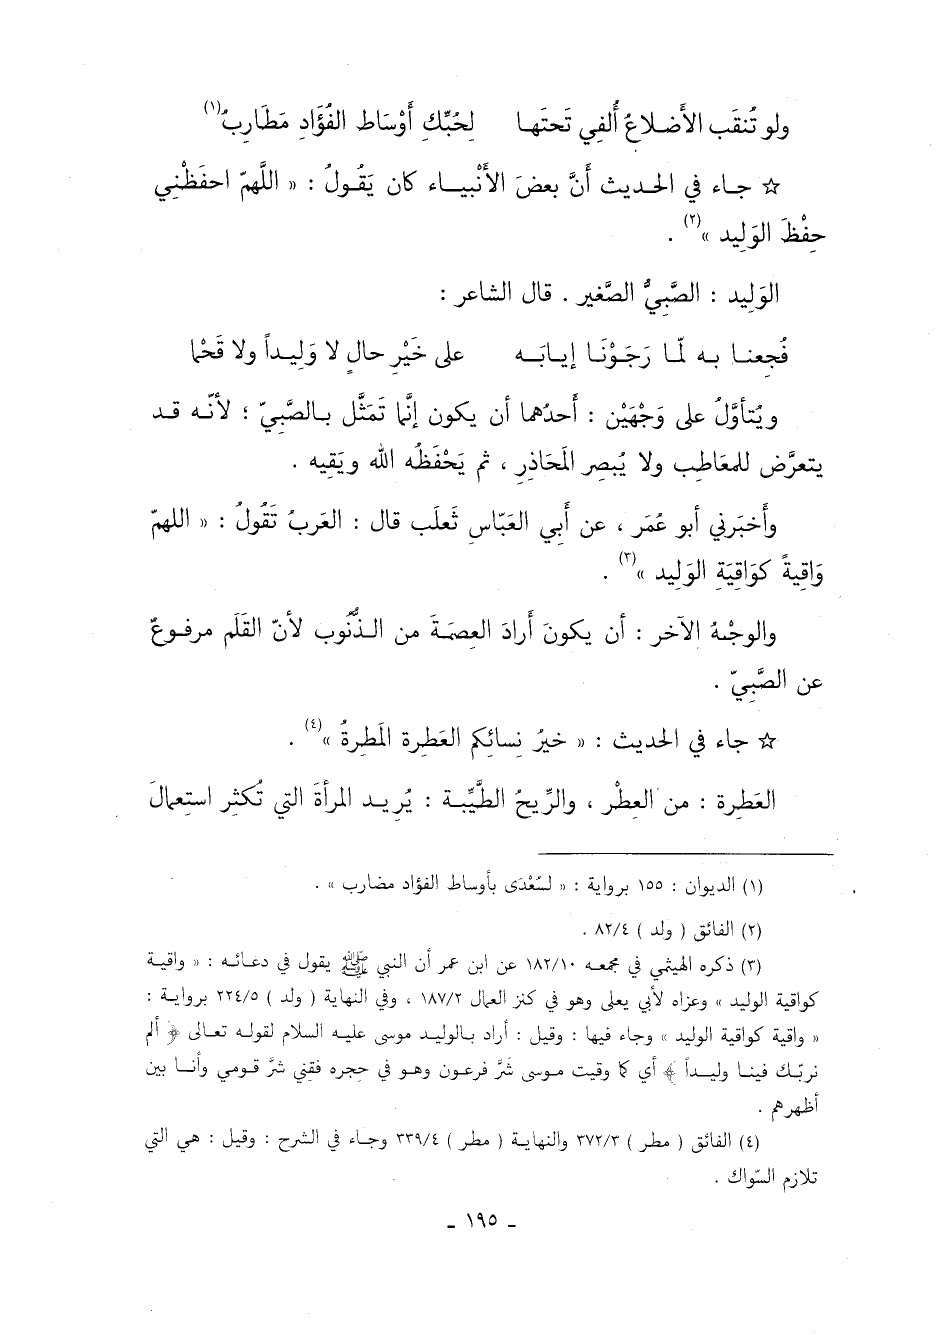 ولو تُنقَب الأَضلاعُ أُلفِي تَحتَها    لِحُبِّكِ أَوْسَاط الفُؤَادِ مَطَارِبُ(١)
☆ جاء في الحديث أَنَّ بعضَ الأَنْبياء كان يَقُولُ : « اللَّهمّ احفَظْنِي
حِفْظَ الوَلِيد »(٢) .
الوَلِيد : الصَّبِيُّ الصَّغير . قال الشاعر :
فُجعنا به لمّا رَجَوْنَا إيابَه    على خَيْرِ حالٍ لا وَلِيداً ولا قَحْما
ويُتأوَّلُ على وَجْهَيْن : أَحدُهما أن يكون إنَّما تَمَثَّل بالصَّبِيّ ؛ لأنّه قد
يتعرَّض للمعَاطِب ولا يُبصِر المَحَاذِر ، ثم يَحْفَظُه الله ويَقِيه .
وأَخبَرني أبو عُمَر ، عن أَبي العَبّاس ثَعلَب قال : العَربُ تَقُولُ : « اللهمّ
وَاقِيةً كوَاقِيَةِ الوَلِيد »(٣) .
والوجْهُ الآخر : أن يكونَ أَرادَ العِصمَةَ من الذُّنُوب لأنّ القَلَم مرفوعٌ
عن الصَّبِيّ .
☆ جاء في الحديث : « خيرُ نِسائِكم العَطِرة المَطِرةُ »(٤) .
العَطِرة : من العِطْر ، والرِّيحُ الطَّيِّبة : يُريد المرأةَ التي تُكثِر استعمالَ
(١) الديوان : ١٥٥ برواية : « لسُعْدَى بأوساط الفؤاد مضارب » .
(٢) الفائق ( ولد ) ٨٢/٤ .
(٣) ذكره الهيثمي في مجمعه ١٨٢/١٠ عن ابن عمر أن النبي ﷺ يقول في دعائه : « واقية
كواقية الوليد » وعزاه لأبي يعلى وهو في كنز العمال ١٨٧/٢ ، وفي النهاية ( ولد ) ٢٢٤/٥ برواية :
« واقية كواقية الوليد » وجاء فيها : وقيل : أراد بالوليد موسى عليه السلام لقوله تعالى ﴿ ألم
نربّك فينا وليداً ﴾ أي كما وقيت موسى شرَّ فرعون وهو في حجره فقني شرَّ قومي وأنا بين
أظهرهم .
(٤) الفائق ( مطر ) ٣٧٢/٣ والنهاية ( مطر ) ٣٣٩/٤ وجاء في الشرح : وقيل : هي التي
تلازم السّواك .
ـ ١٩٥ ـ